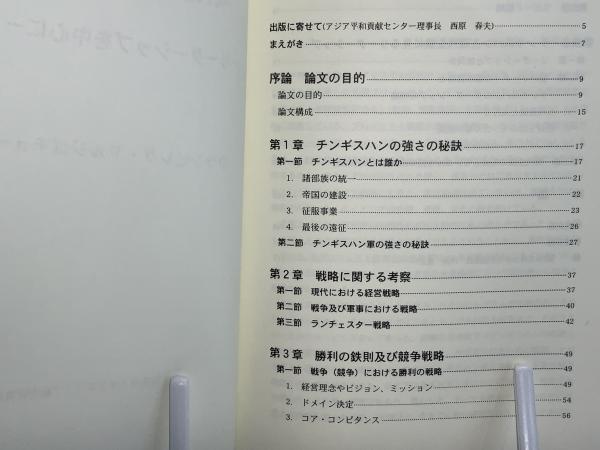 出版に寄せて(アジア平和貢献センター理事長　西原　春夫)……5
まえがき……7
序論　論文の目的……9
論文の目的……9
論文構成……15
第1章　チンギスハンの強さの秘訣……17
第一節　チンギスハンとは誰か……17
1.　諸部族の統一……21
2.　帝国の建設……22
3.　征服事業……23
4.　最後の遠征……26
第二節　チンギスハン軍の強さの秘訣……27
第2章　戦略に関する考察……37
第一節　現代における経営戦略……37
第二節　戦争及び軍事における戦略……40
第三節　ランチェスター戦略……42
第3章　勝利の鉄則及び競争戦略……49
第一節　戦争（競争）における勝利の戦略……49
1.　経営理念やビジョン、ミッション……49
2.　ドメイン決定……54
3.　コア・コンピタンス……56